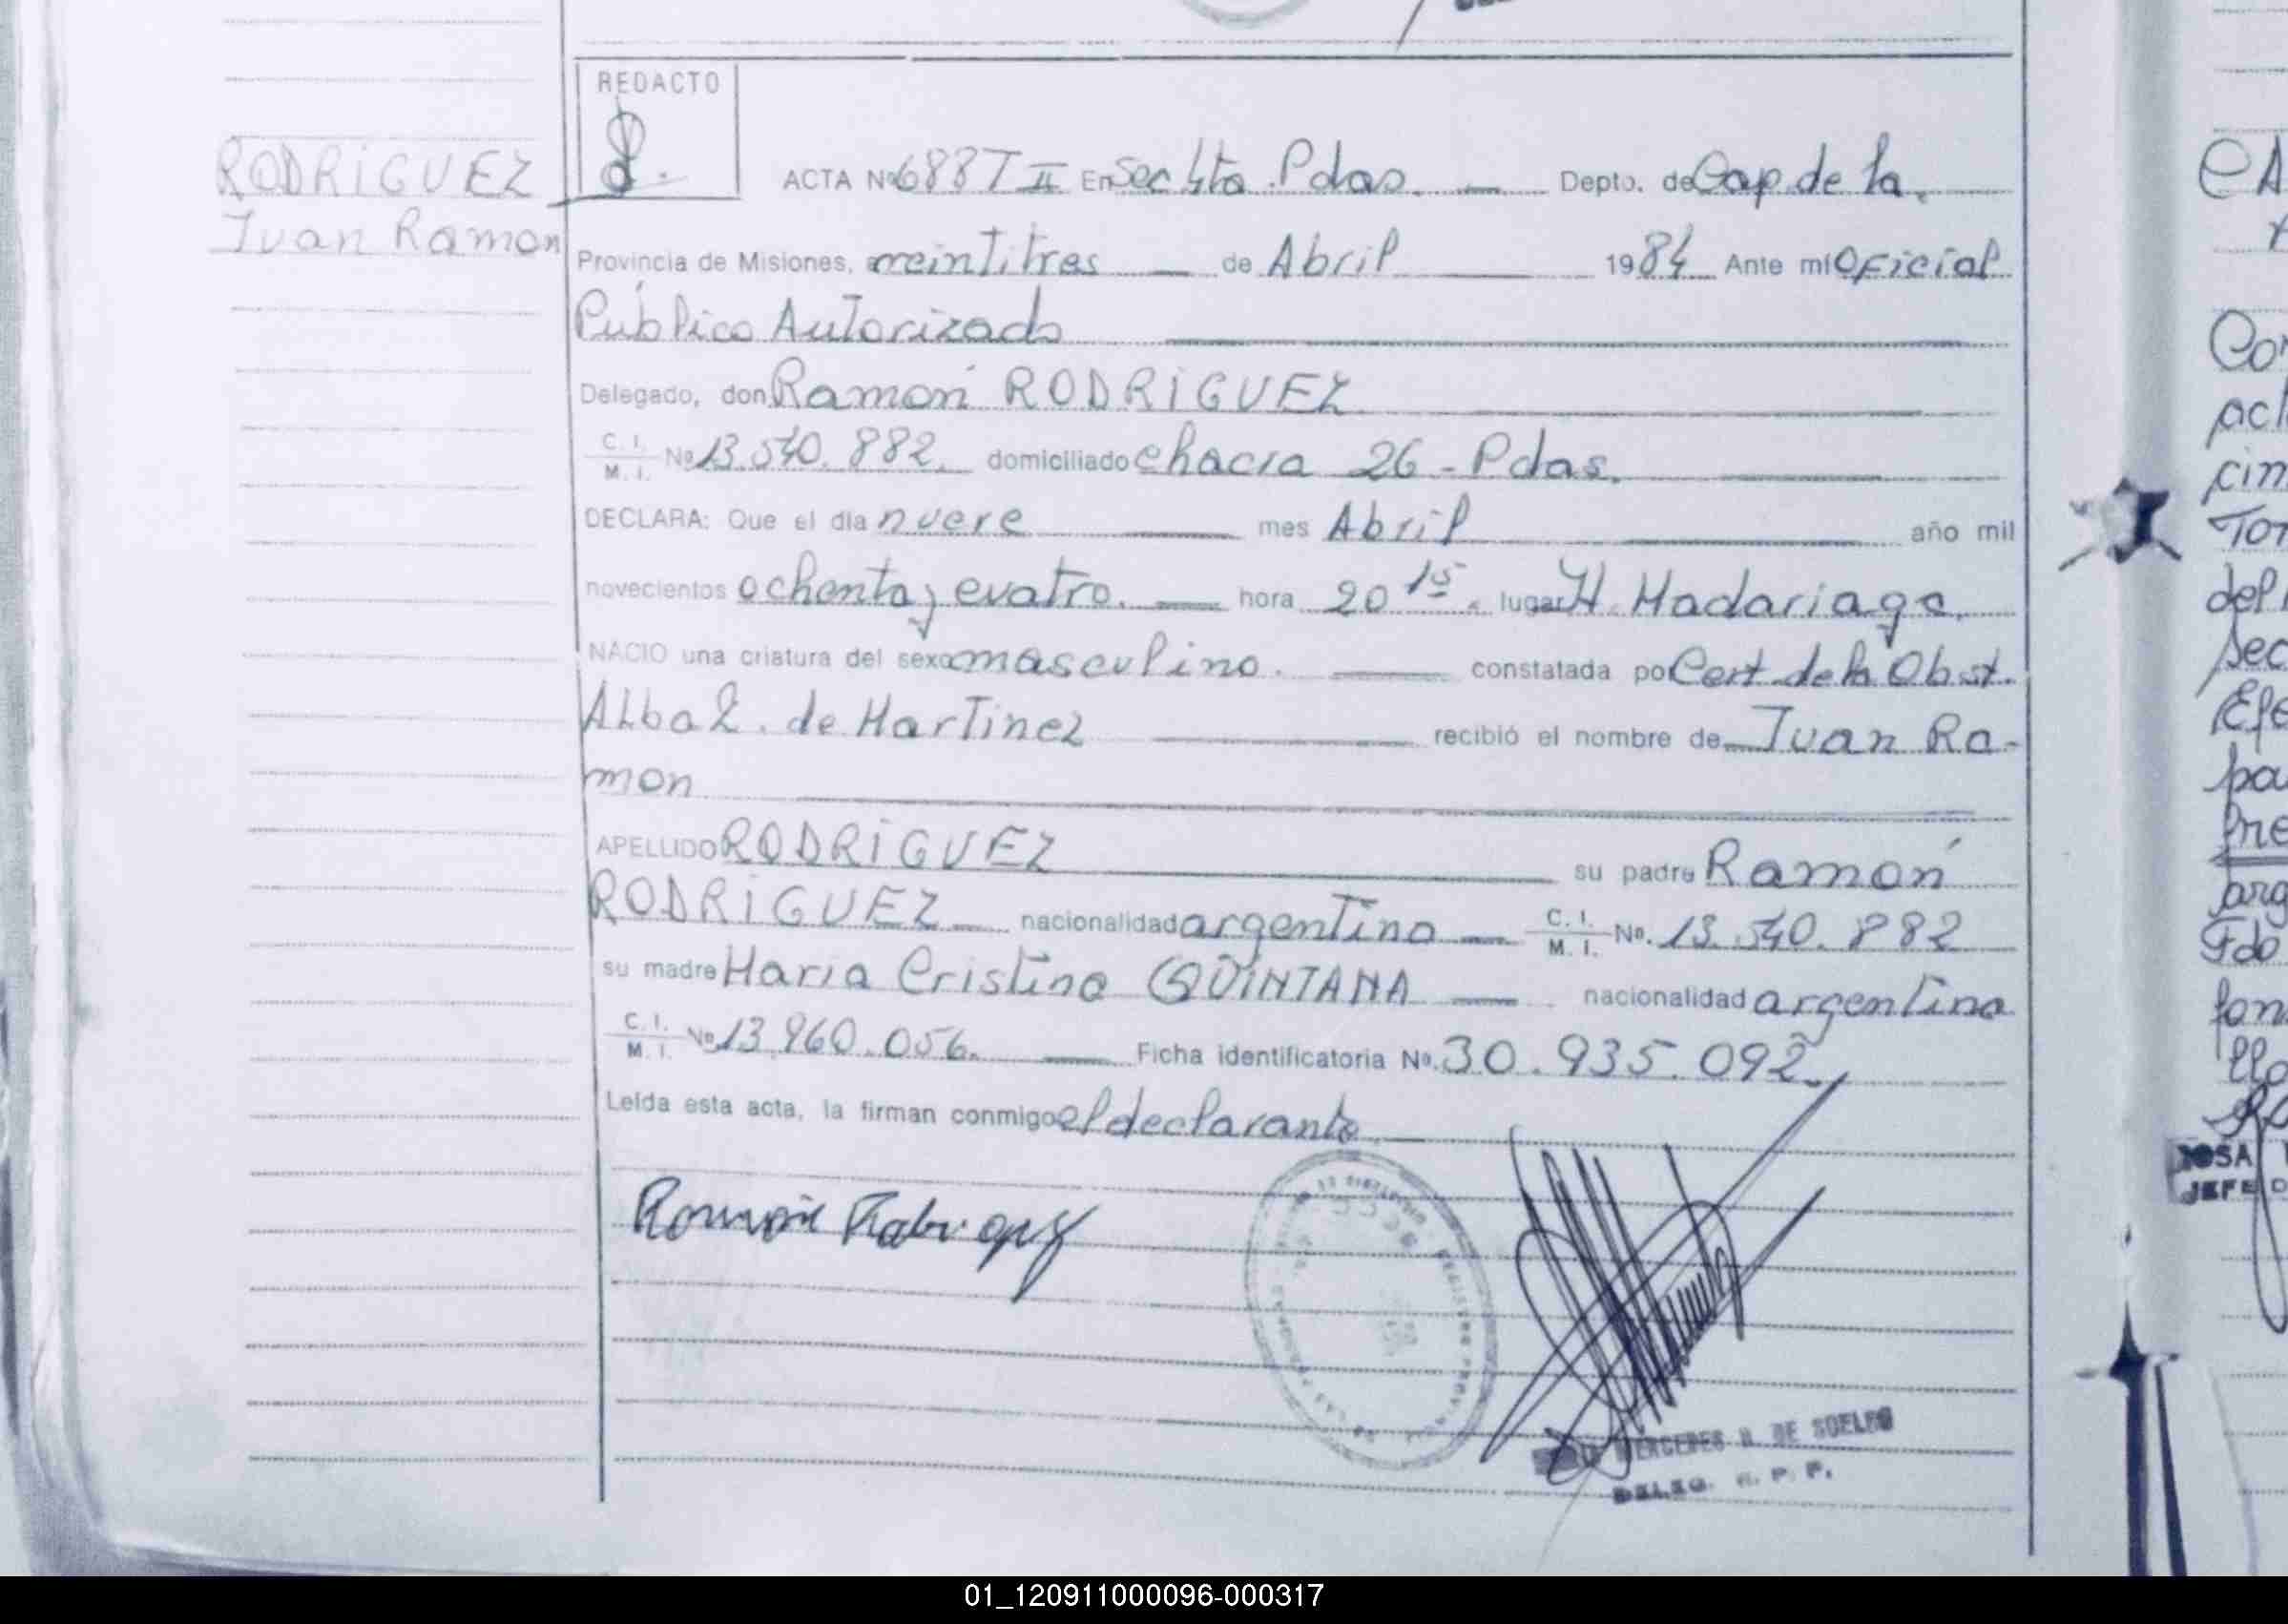 REDACTO
RODRIGUEZ
Juan Ramon
ACTA Nº 688 T II En Sec 4ta Pdas. Depto. de Cap. de la
Provincia de Misiones, a veintitres de Abril 1984 Ante mí Oficial
Público Autorizado
Delegado, don Ramón RODRIGUEZ
C. I.
M. I. Nº 13.540.882. domiciliado chacra 26 - Pdas.
DECLARA: Que el día nueve mes Abril año mil
novecientos ochenta y cuatro. hora 20 15 lugar H. Madariaga.
NACIO una criatura del sexo masculino. constatada por Cert. de la Obst.
Alba Z. de Martinez recibió el nombre de Juan Ra-
mon
APELLIDO RODRIGUEZ su padre Ramón
RODRIGUEZ nacionalidad argentina C. I.
M. I. Nº. 13.540.882
su madre Maria Cristina QUINTANA nacionalidad argentina
C. I.
M. I. Nº 13.960.056. Ficha identificatoria Nº. 30.935.092.
Leída esta acta, la firman conmigo el declarante
Ramón Rodriguez
MERCEDES DE SUELDO
DELEG. R. P. P.
JEFE
01_120911000096-000317